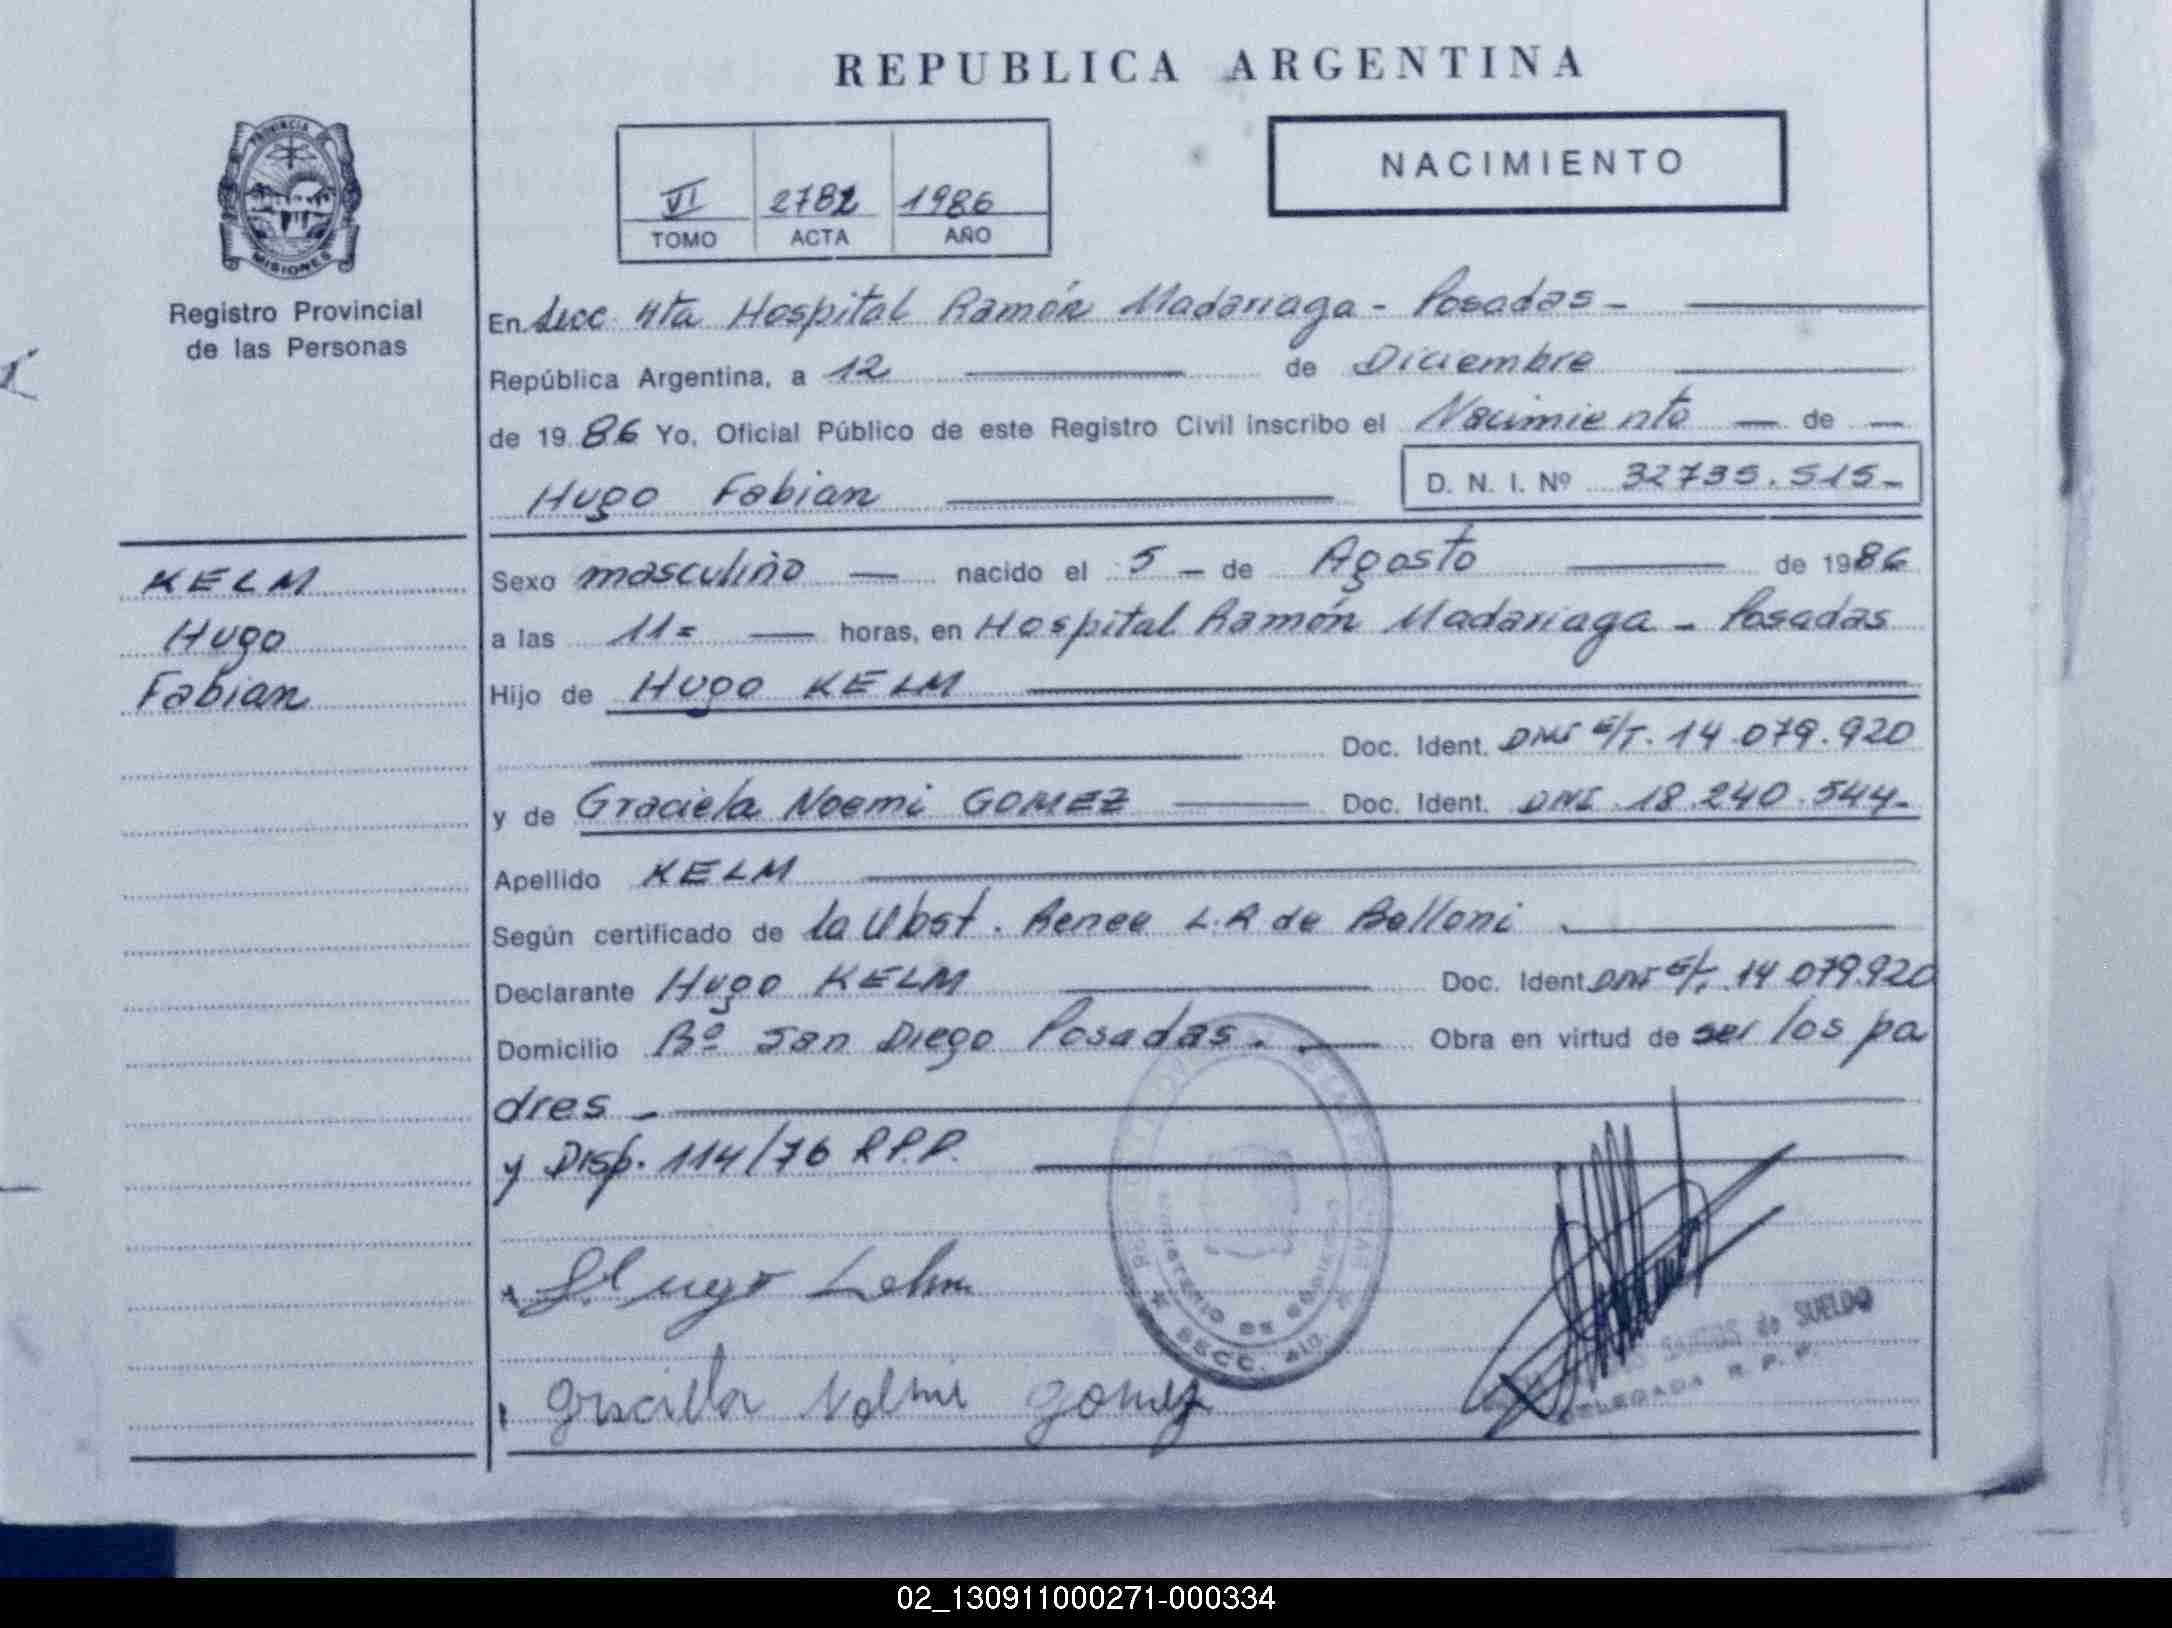 REPUBLICA ARGENTINA
PROVINCIA
MISIONES
Registro Provincial
de las Personas
VI 2782 1986
TOMO ACTA AÑO
NACIMIENTO
En Secc 4ta Hospital Ramón Madariaga - Posadas -
República Argentina, a 12 de Diciembre
de 1986 Yo, Oficial Público de este Registro Civil inscribo el Nacimiento — de —
Hugo Fabian D. N. I. Nº 32735.515-
KELM
Hugo
Fabian
Sexo masculino — nacido el 5 - de Agosto de 1986
a las 11= — horas, en Hospital Ramón Madariaga - Posadas
Hijo de Hugo KELM
Doc. Ident. DNI E/T. 14.079.920
y de Graciela Noemi GOMEZ Doc. Ident. DNI 18.240.544-
Apellido KELM
Según certificado de la Obst. Renee L.R de Belloni
Declarante Hugo KELM Doc. Ident DNI E/T. 14 079.920
Domicilio Bº San Diego Posadas. — Obra en virtud de ser los pa
dres -
y Disp. 114/76 R.P.P.
Hugo Kelm
Graciela Noemi Gomez
SECC. 4ta.
SANTOS de SUELDO
DELEGADA R. P. P.
02_130911000271-000334